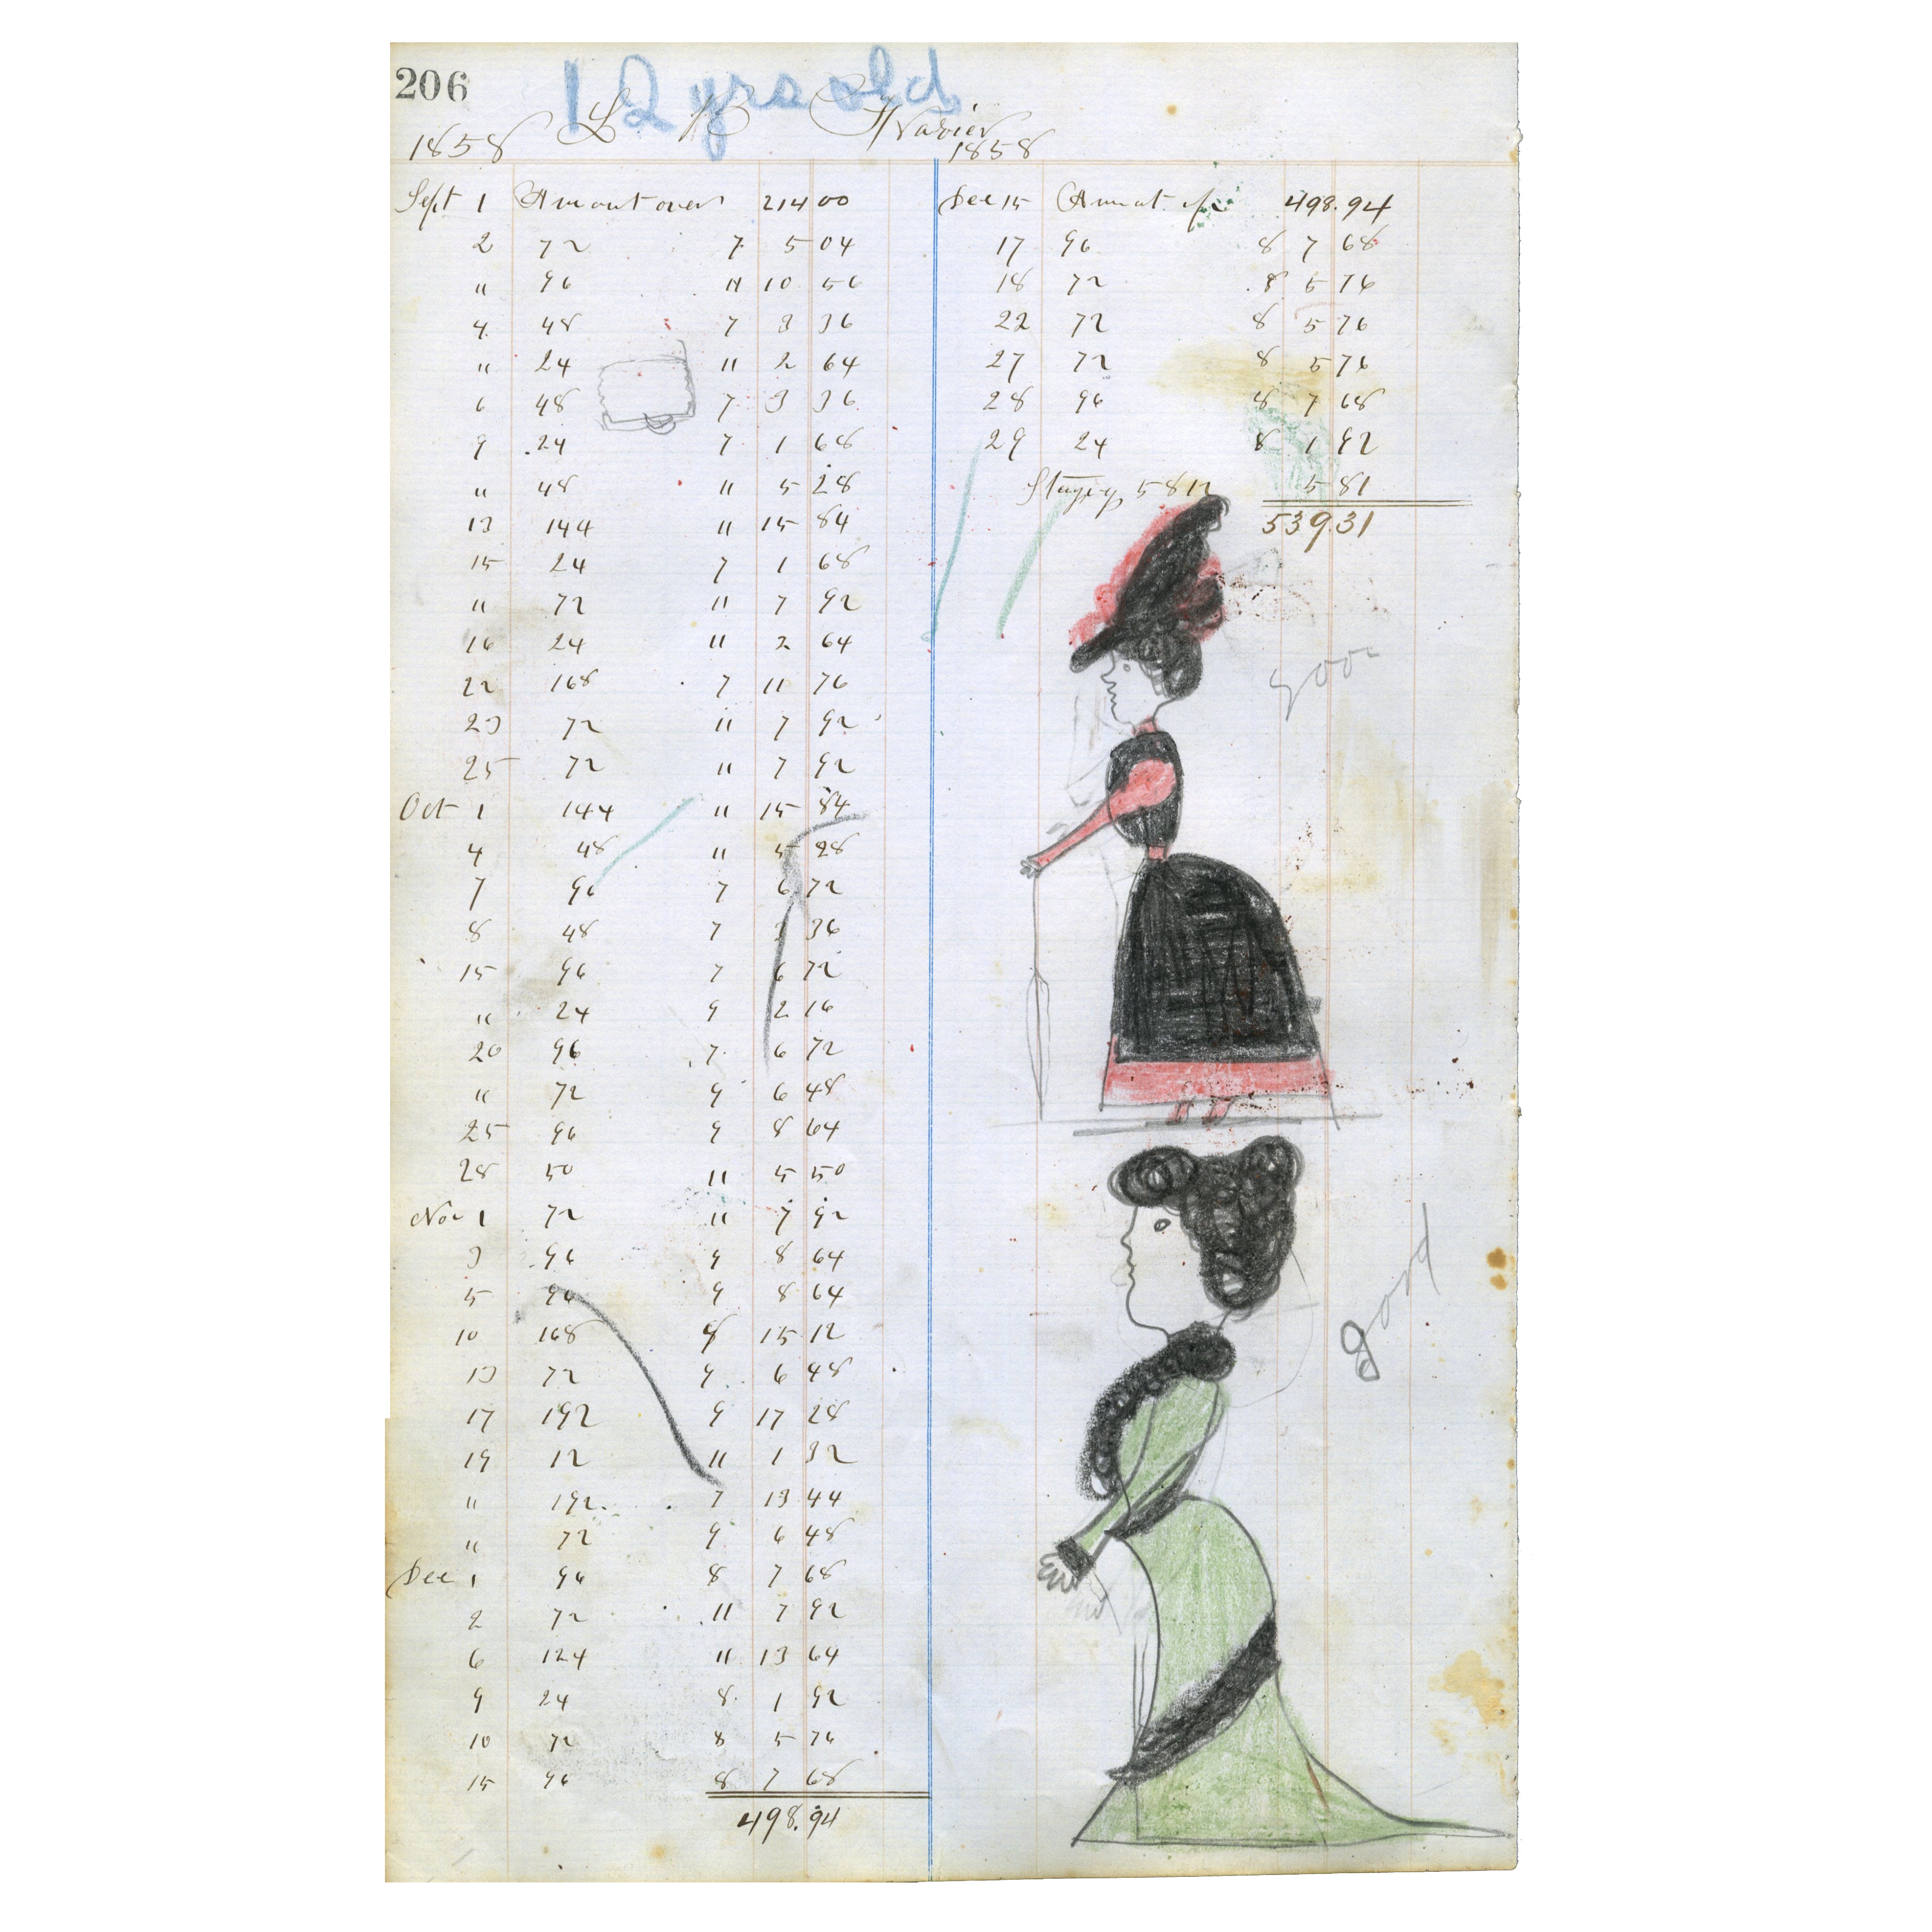 206
12 yrs old
1858
1858
Sept 1 Amount over 214 00
2 72 7 5 04
" 96 11 10 56
4 48 7 3 36
" 24 11 2 64
6 48 7 3 36
9 24 7 1 68
" 48 11 5 28
13 144 11 15 84
15 24 7 1 68
" 72 11 7 92
16 24 11 2 64
22 168 7 11 76
23 72 11 7 92
25 72 11 7 92
Oct 1 144 11 15 84
4 48 11 5 28
7 96 7 6 72
8 48 7 3 36
15 96 7 6 72
" 24 9 2 16
20 96 7 6 72
" 72 9 6 48
25 96 9 8 64
28 50 11 5 50
Nov 1 72 11 7 92
3 96 9 8 64
5 96 9 8 64
10 168 9 15 12
13 72 9 6 48
17 192 9 17 28
19 12 11 1 32
" 192 7 13 44
" 72 9 6 48
Dec 1 96 8 7 68
2 72 11 7 92
6 124 11 13 64
9 24 8 1 92
10 72 8 5 76
15 96 8 7 68
498.94
Dec 15 498.94
17 96 8 7 68
18 72 8 5 76
22 72 8 5 76
27 72 8 5 76
28 96 8 7 68
29 24 8 1 92
5 81
539.31
good